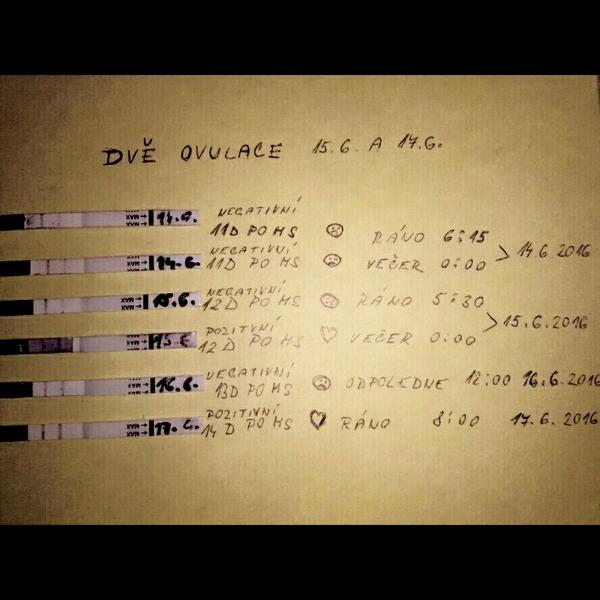 DVĚ OVULACE 15.6. A 17.6.
MAX 14.6. NEGATIVNÍ
11D PO MS RÁNO 6:15
14.6.2016
MAX 14.6. NEGATIVNÍ
11D PO MS VEČER 0:00
MAX 15.6. NEGATIVNÍ
12D PO MS RÁNO 5:30
15.6.2016
MAX 15.6. POZITIVNÍ
12D PO MS VEČER 0:00
MAX 16.6. NEGATIVNÍ
13D PO MS ODPOLEDNE 12:00 16.6.2016
MAX 17.6. POZITIVNÍ
14D PO MS RÁNO 8:00 17.6.2016